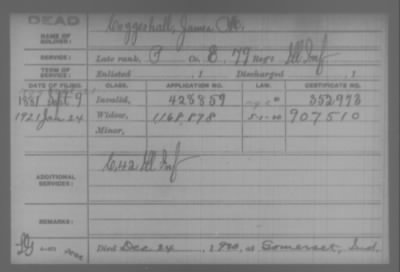 DEAD
NAME OF SOLDIER: Coggeshall, James M.
SERVICE: Late rank, P Co. E. 79 Reg't Ill Inf
TERM OF SERVICE: Enlisted , 1 Discharged , 1
DATE OF FILING. CLASS. APPLICATION NO. LAW. CERTIFICATE NO.
1881 Sept 9 Invalid, 428859 352993
1921 Jan 24 Widow, 1168878 907510
Minor,
ADDITIONAL SERVICES: C, 42 Ill Inf
REMARKS:
Died Dec 24 , 1920, at Somerset, Ind.